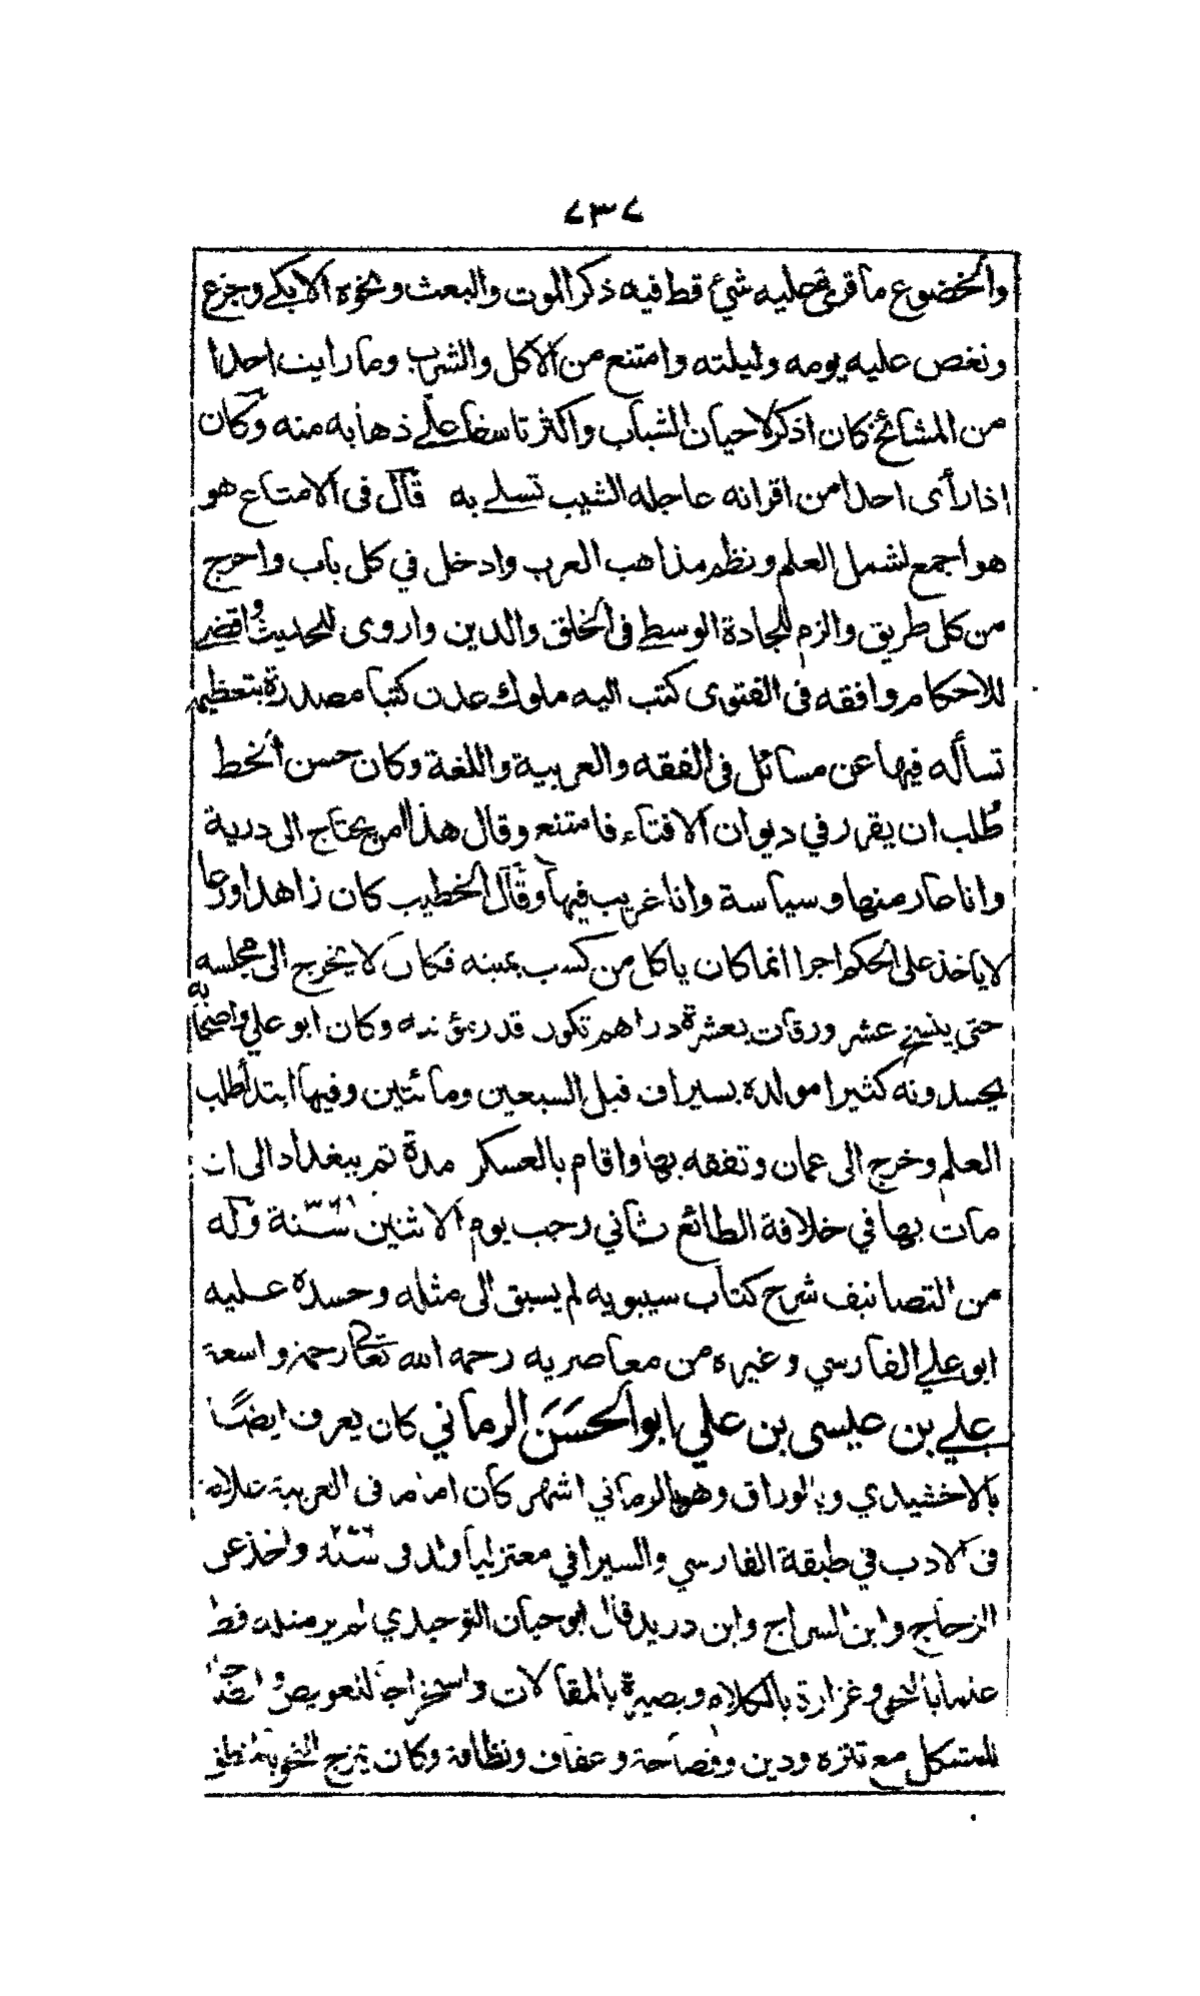 ٧٣٧
والخضوع ما قرئ عليه شئ قط فيه ذكر الموت والبعث ونحوه الا بكى وجزع
ونغص عليه يومه وليلته وامتنع من الاكل والشرب وما رايت احدا
من المشائخ كان اذكر لاحيان الشباب واكثر تاسفا على ذهابه منه وكان
اذا رأى احدا من اقرانه عاجله الشيب تسلى به قال فى الامتاع هو
هو اجمع لشمل العلم ونظم مذاهب العرب وادخل في كل باب واخرج
من كل طريق والزم للجادة الوسطى فى الخلق والدين واروى للحديث واقضى
للاحكام وافقه فى الفتوى كتب اليه ملوك عدن كتبا مصدرة بتعظيمه
تسأله فيها عن مسائل فى الفقه والعربية واللغة وكان حسن الخط
طلب ان يقرر في ديوان الافتاء فامتنع وقال هذا امر يحتاج الى درية
وانا عار منها وسياسة وانا غريب فيها وقال الخطيب كان زاهدا ورعا
لا ياخذ على الحكم اجرا انما كان ياكل من كسب يمينه فكان لا يخرج الى مجلسه
حتى ينسخ عشر ورقات بعشرة دراهم تكون قدر مؤنته وكان ابو علي واصحابه
يحسدونه كثيرا مولده بسيراف قبل السبعين ومائتين وفيها ابتدأ طلب
العلم وخرج الى عمان وتفقه بها واقام بالعسكر مدة ثم ببغداد الى ان
مات بها في خلافة الطائع ثاني رجب يوم الاثنين سنة وله
من التصانيف شرح كتاب سيبويه لم يسبق الى مثله وحسده عليه
ابو علي الفارسي وغيره من معاصريه رحمه الله تعالى رحمة واسعة
علي بن عيسى بن علي ابو الحسن الرماني كان يعرف ايضا
بالاخشيدي وبالوراق وهو بالرماني اشهر كان اماما فى العربية علامة
فى الادب في طبقة الفارسي والسيرافي معتزليا ولد فى سنة واخذ عن
الزجاج وابن السراج وابن دريد قال ابو حيان التوحيدي لم ير مثله قط
علما بالنحو وغزارة بالكلام وبصيرة بالمقالات واستخراجا للعويص وايضاحا
للمشكل مع تنزه ودين وفصاحة وعفاف ونظافة وكان يمزج النحو بالمنطق